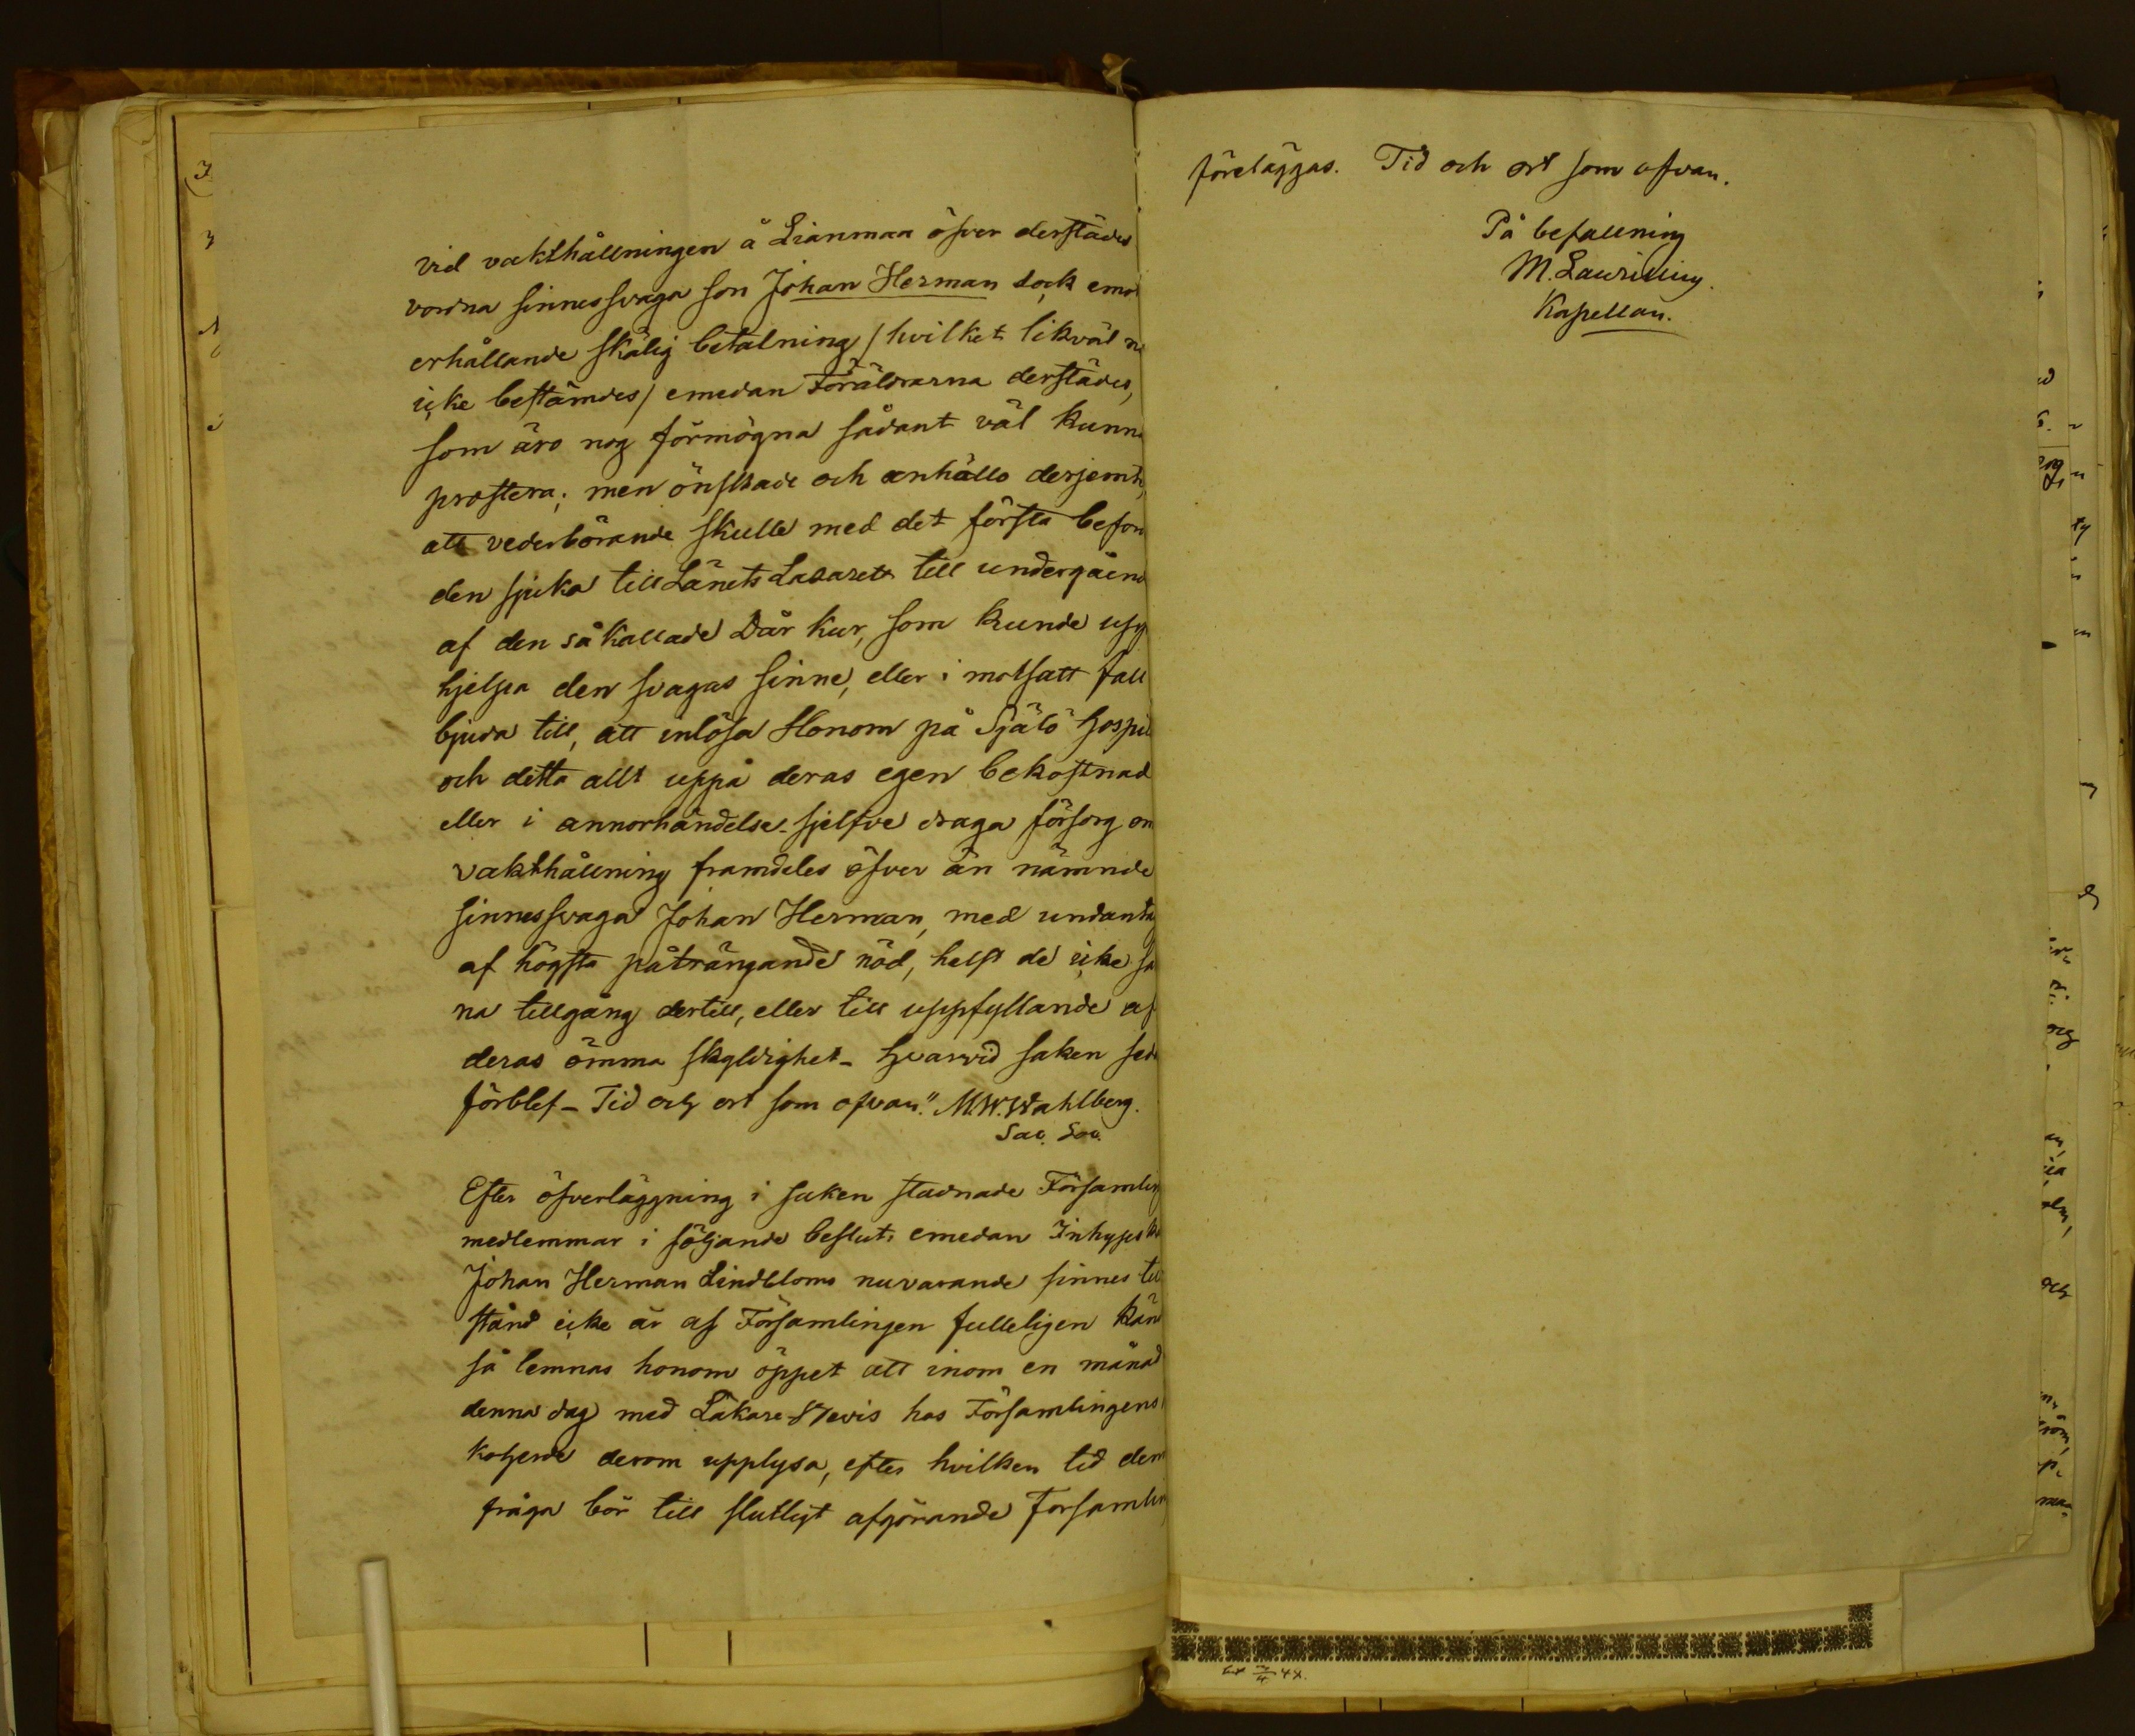 vid vakthållningen å Lianmaa öfver derstädes
vordna sinnessvaga son Johan Herman dock emo
erhållande skälig betalning / hvilket likväl n
icke bestämdes / emedan Föräldrarna derstädes,
som äro nog förmögna sådant väl kunn
prestera; men önskade och anhöllo derjemte,
att vederbörande skulle med det första befor
den sjuka till Länets Lasarett till undergåend
af den så kallade Dår kur, som kunde upp
hjelpa den svagas sinne, eller i motsatt fall
bjuda till, att inlösa Honom på Själö hospit
och detta allt uppå deras egen bekostnad
eller i annorhändelse sjelfve draga försorg om
vakthållning framdeles öfver än nämnde
sinnessvaga Johan Herman, med undantag
af högsta påträngande nöd, helst de icke sa
na tillgång dertill, eller till uppfyllande af
deras ömma skyldighet - hvarvid saken sed
förblef - Tid och ort som ofvan." M.W. Wahlberg.
Sac. Soc.
Efter öfverläggning i saken stadnade Församling
medlemmar i följande beslut: emedan Inhyses
Johan Herman Lindbloms nuvarande sinnes til
stånd icke är af Församlingen fulleligen känd
så lemnas honom öppet att inom en månad
denna dag med Läkare-bevis hos Församlingens
derom upplysa, efter hvilken tid denn
fråga bör till slutligt afgörande Församlin
föreläggas. Tid och ort som ofvan.
På befallning
M. Laurinus.
Kapellan.